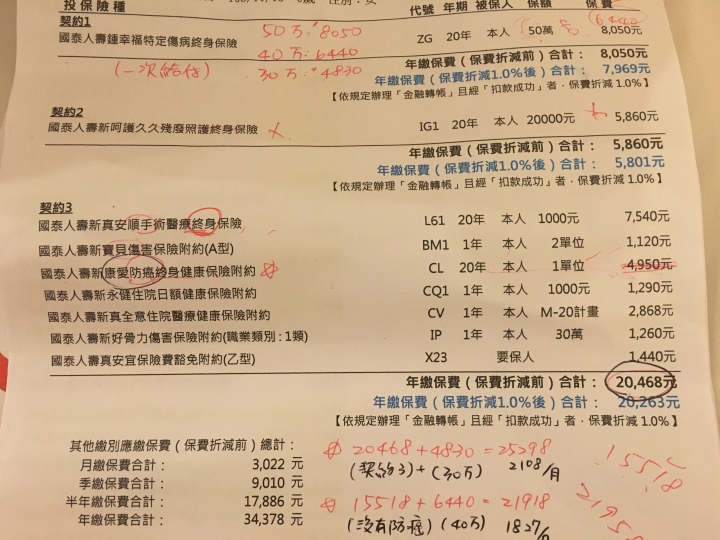 投保險種 性別：女 代號 年期 被保人 保額 保費
契約1 50万：8050 (6440)
國泰人壽鍾幸福特定傷病終身保險 ZG 20年 本人 50萬 8,050元
40万：6440
年繳保費（保費折減前）合計： 8,050元
(一次給付) 30万：4830
年繳保費（保費折減1.0%後）合計： 7,969元
【依規定辦理「金融轉帳」且經「扣款成功」者，保費折減 1.0%】
契約2
國泰人壽新呵護久久殘廢照護終身保險 IG1 20年 本人 20000元 5,860元
年繳保費（保費折減前）合計： 5,860元
年繳保費（保費折減1.0%後）合計： 5,801元
【依規定辦理「金融轉帳」且經「扣款成功」者，保費折減 1.0%】
契約3
國泰人壽新真安順手術醫療終身保險 L61 20年 本人 1000元 7,540元
國泰人壽新寶貝傷害保險附約(A型) BM1 1年 本人 2單位 1,120元
國泰人壽新康愛防癌終身健康保險附約 CL 20年 本人 1單位 4,950元
國泰人壽新永健住院日額健康保險附約 CQ1 1年 本人 1000元 1,290元
國泰人壽新真全意住院醫療健康保險附約 CV 1年 本人 M-20計畫 2,868元
國泰人壽新好骨力傷害保險附約(職業類別：1類) IP 1年 本人 30萬 1,260元
國泰人壽真安宜保險費豁免附約(乙型) X23 要保人 1,440元
年繳保費（保費折減前）合計： 20,468元
年繳保費（保費折減1.0%後）合計： 20,263元
【依規定辦理「金融轉帳」且經「扣款成功」者，保費折減 1.0%】
其他繳別應繳保費（保費折減前）總計：
月繳保費合計： 3,022 元
季繳保費合計： 9,010 元
半年繳保費合計： 17,886 元
年繳保費合計： 34,378 元
20468+4830=25298
(契約3)+(30万) 2108/月
15518+6440=21918
(沒有防癌) (40万) 1827/
15518